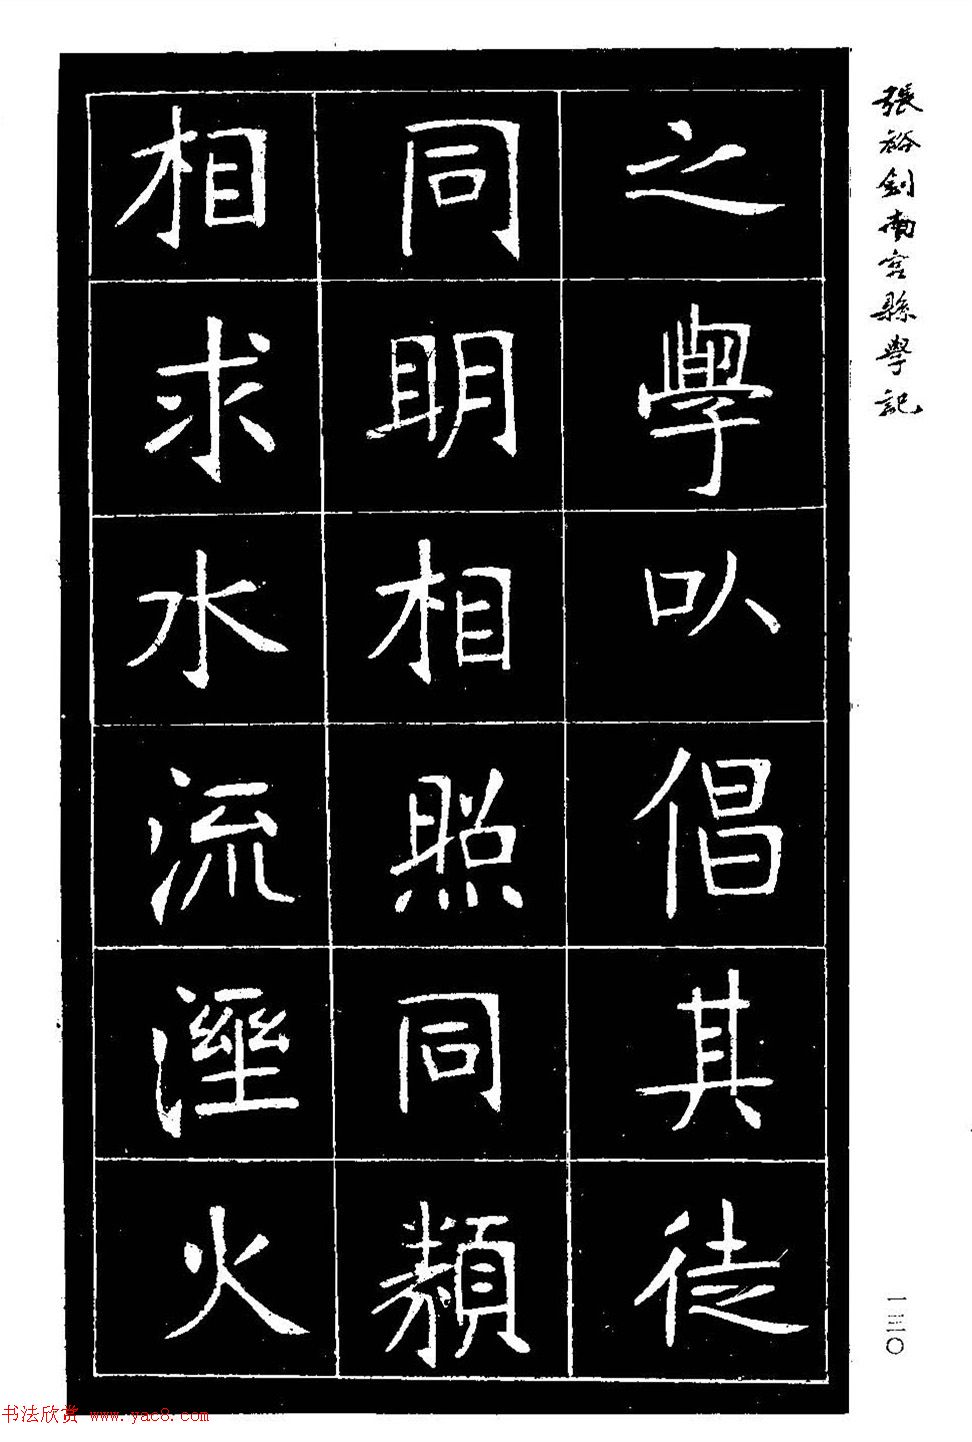 張裕釗南宮縣學記
之學以倡其徒
同明相照同類
相求水流溼火
一三〇
书法欣赏 www.yac8.com